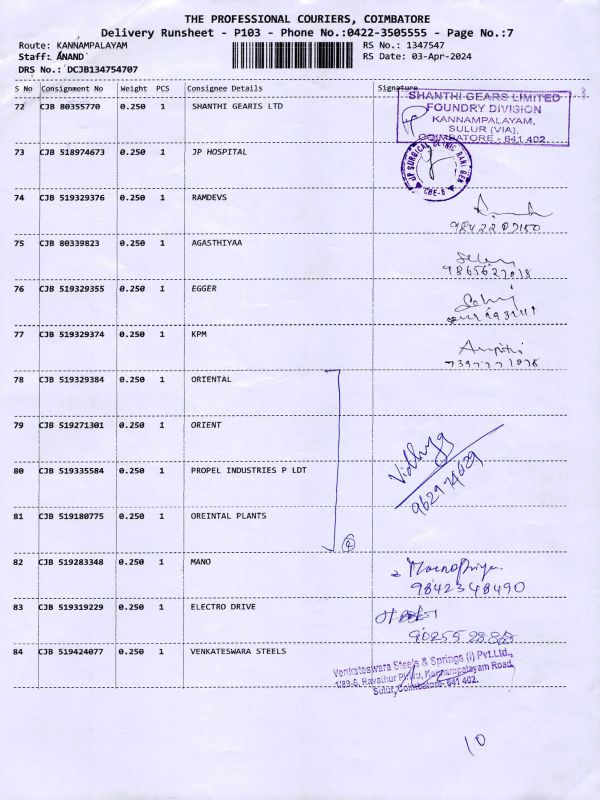 THE PROFESSIONAL COURIERS, COIMBATORE
Delivery Runsheet - P103 - Phone No.:0422-3505555 - Page No.:7
Route: KANNAMPALAYAM
RS No.: 1347547
Staff: ANAND
RS Date: 03-Apr-2024
DRS No.: DCJB134754707
S No Consignment No Weight PCS Consignee Details Signature
72 CJB 80355770 0.250 1 SHANTHI GEARIS LTD
SHANTHI GEARS LIMITED
FOUNDRY DIVISION
KANNAMPALAYAM,
SULUR (VIA),
COIMBATORE - 641 402.
73 CJB 518974673 0.250 1 JP HOSPITAL
JP SURGICAL CLINIC
CBE-6
74 CJB 519329376 0.250 1 RAMDEVS
75 CJB 80339823 0.250 1 AGASTHIYAA
76 CJB 519329355 0.250 1 EGGER
77 CJB 519329374 0.250 1 KPM
78 CJB 519329384 0.250 1 ORIENTAL
79 CJB 519271301 0.250 1 ORIENT
Vidhya
80 CJB 519335584 0.250 1 PROPEL INDUSTRIES P LDT
81 CJB 519180775 0.250 1 OREINTAL PLANTS
82 CJB 519283348 0.250 1 MANO
Manopriya
9842348490
83 CJB 519319229 0.250 1 ELECTRO DRIVE
84 CJB 519424077 0.250 1 VENKATESWARA STEELS
Venkateswara Steels & Springs (I) Pvt.Ltd.,
Kannampalayam Road,
Sulur, Coimbatore- 641 402.
10